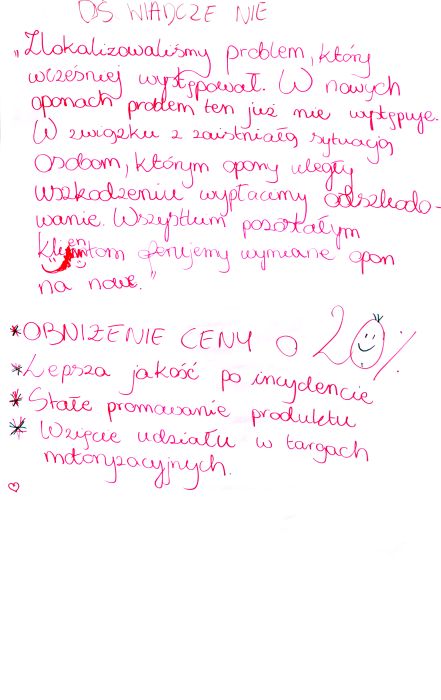 OŚWIADCZENIE
"Zlokalizowaliśmy problem, który
wcześniej występował. W nowych
oponach problem ten już nie występuje.
W związku z zaistniałą sytuacją
osobom, którym opony uległy
uszkodzeniu wypłacamy odszkodo-
wanie. Wszystkim pozostałym
klientom oferujemy wymianę opon
na nowe."
* OBNIŻENIE CENY O 20%
* Lepsza jakość po incydencie
* Stałe promowanie produktu
* Wzięcie udziału w targach
motoryzacyjnych.